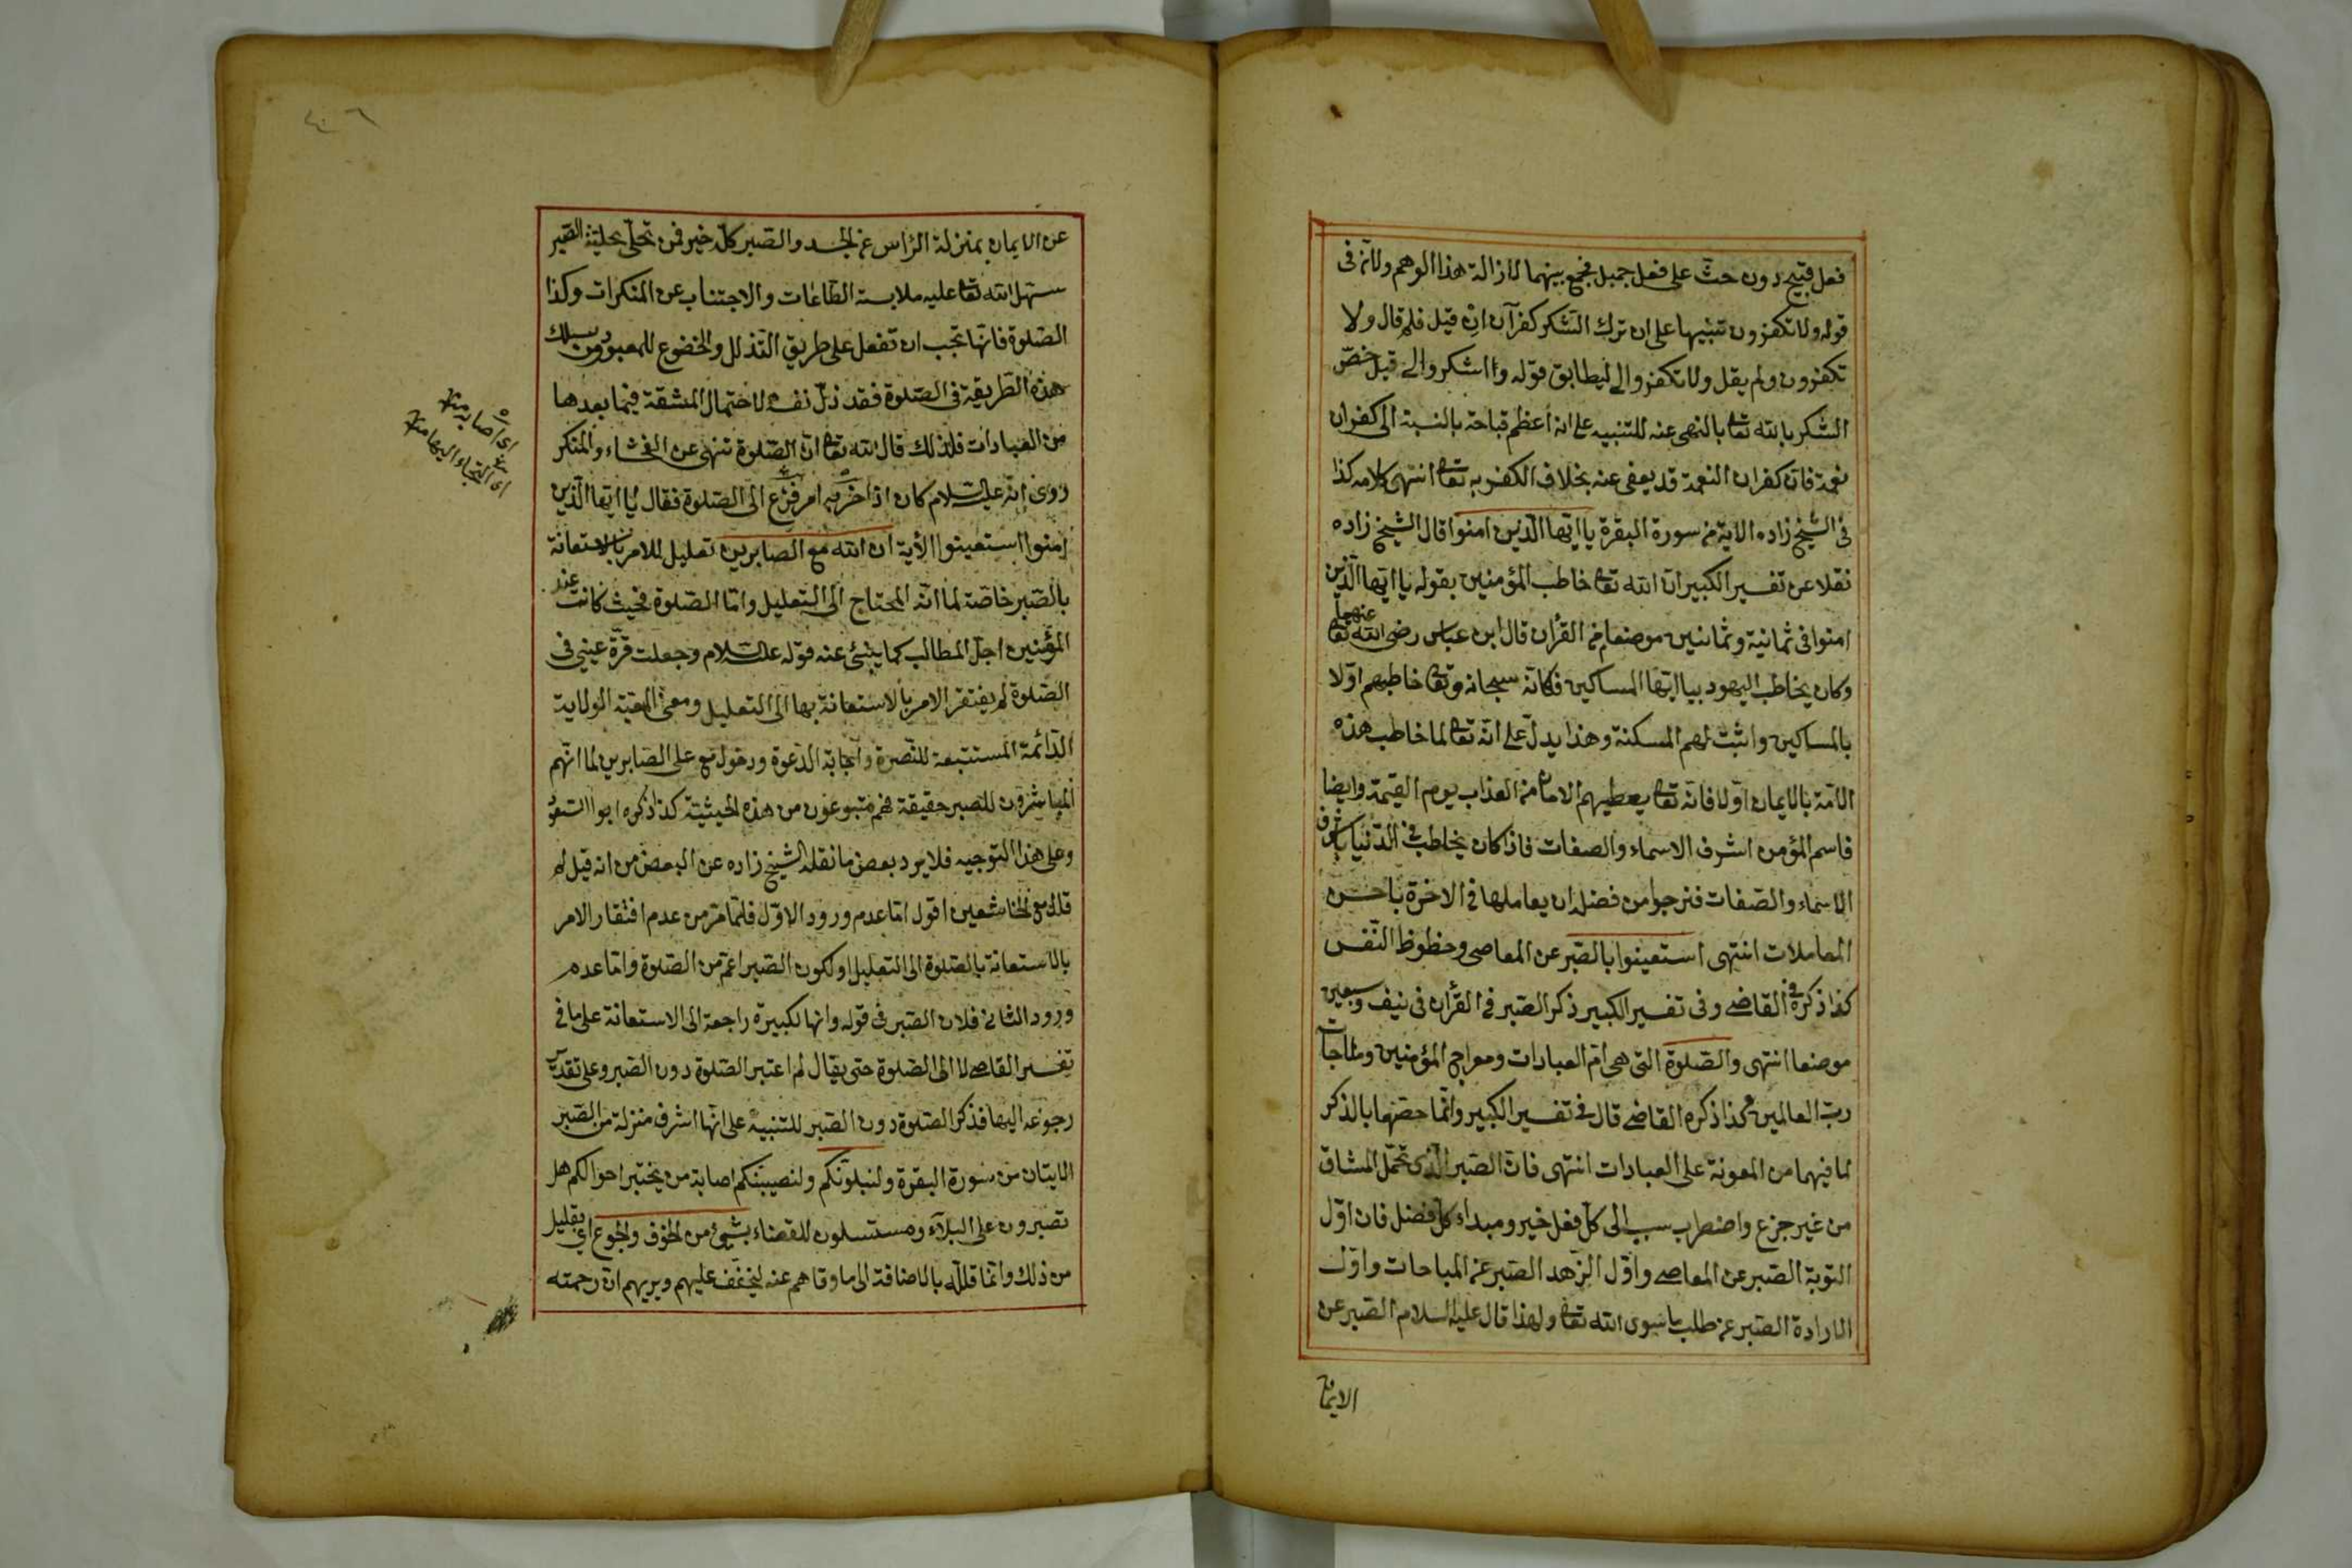 فعل قبيح دون حث على فعل جميل فجمع بينهما لازالة هذا الوهم ولانه فى
قوله ولا تكفرون تنبيها على ان ترك الشكر كفران ان قيل فلم قال ولا
تكفرون ولم يقل ولا تكفروا لى ليطابق قوله واشكروا لى قيل خص
الشكر بالله تعا بالنهى عنه للتنبيه على انه أعظم قباحة بالنسبة الى كفران
نعمة فان كفران النعمة قد يعفى عنه بخلاف الكفر به تعا انتهى كلامه كذا
فى الشيخ زاده الاية من سورة البقرة يا ايها الذين امنوا قال الشيخ زاده
نقلا عن تفسير الكبير ان الله تعا خاطب المؤمنين بقوله يا ايها الذين
امنوا فى ثمانية وثمانين موضعا من القرأن قال ابن عباس رضى الله تعا عنهما
وكان يخاطب اليهود بيا ايها المساكين فكانه سبحانه وتعا خاطبهم اولا
بالمساكين واثبت لهم المسكنة وهذا يدل على انه تعا لما خاطب هذه
الامة بالايمان اولا فانه تعا يعطيهم الامان من العذاب يوم القيمة وايضا
فاسم المؤمن اشرف الاسماء والصفات فاذا كان يخاطب فى الدنيا باشرف
الاسماء والصفات فنرجوا من فضله ان يعاملها فى الاخرة باحسن
المعاملات انتهى استعينوا بالصبر عن المعاصى وحظوظ النفس
كذا ذكره فى القاضى وفى تفسير الكبير ذكر الصبر فى القرأن فى نيف وسبعين
موضعا انتهى والصلوة التى هى ام العبادات ومعراج المؤمنين ومناجات
رب العالمين كذا ذكره القاضى قال فى تفسير الكبير وانما خصهما بالذكر
لما فيهما من المعونة على العبادات انتهى فان الصبر الذى تحمل المشاق
من غير جزع واضطراب سبب الى كل فعل خير ومبداء كل فضل فان اول
التوبة الصبر عن المعاصى واول الزهد الصبر عن المباحات واول
الارادة الصبر عن طلب ما سوى الله تعا ولهذا قال عليه السلام الصبر عن
الايمان
عن الايمان بمنزلة الرأس عن الجسد والصبر كله خير فمن تحلى بحلية الصبر
سهل الله تعا عليه ملابسة الطاعات والاجتناب عن المنكرات وكذا
الصلوة فانها تجب ان تفعل على طريق التذلل والخضوع للمعبود ومن سلك
هذه الطريقة فى الصلوة فقد ذلل نفسه لاحتمال المشقة فيما بعدها
من العبادات فلذلك قال الله تعا ان الصلوة تنهى عن الفحشاء والمنكر
روى انه عليه السلام كان اذا حزبه امر فزع الى الصلوة فقال يا ايها الذين
امنوا استعينوا الأية ان الله مع الصابرين تعليل للامر بالاستعانة
بالصبر خاصة لما انه المحتاج الى التعليل واما الصلوة فحيث كانت عند
المؤمنين اجل المطالب كما ينبئ عنه قوله عليه السلام وجعلت قرة عينى فى
الصلوة لم يفتقر الامر بالاستعانة بها الى التعليل ومعنى المعية الولاية
الدائمة المستتبعة للنصرة واجابة الدعوة ودخول مع على الصابرين لما انهم
المباشرون للصبر حقيقة فهم متبوعون من هذه الحيثية كذا ذكره ابو السعود
وعلى هذا التوجيه فلا يرد بعض ما نقله الشيخ زاده عن البعض من انه قيل لم
قال مع الخاشعين اقول اما عدم ورود الاول فلما مر من عدم افتقار الامر
بالاستعانة بالصلوة الى التعليل او لكون الصبر اعم من الصلوة واما عدم
ورود الثانى فلان الصبر فى قوله وانها لكبيرة راجعة الى الاستعانة على ما فى
تفسير القاضى لا الى الصلوة حتى يقال لم اعتبر الصلوة دون الصبر وعلى تقدير
رجوعه اليها فذكر الصلوة دون الصبر للتنبيه على انها اشرف منزلة من الصبر
الايتان من سورة البقرة ولنبلونكم ولنصيبنكم اصابة من يختبر احوالكم هل
تصبرون على البلاء ومستسلون للقضاء بشئ من الخوف والجوع اى بقليل
من ذلك وانما قلله بالاضافة الى ما وقاهم عنه ليخفف عليهم ويريهم ان رحمته
اى اصابه منه
اى التجاء اليها منه